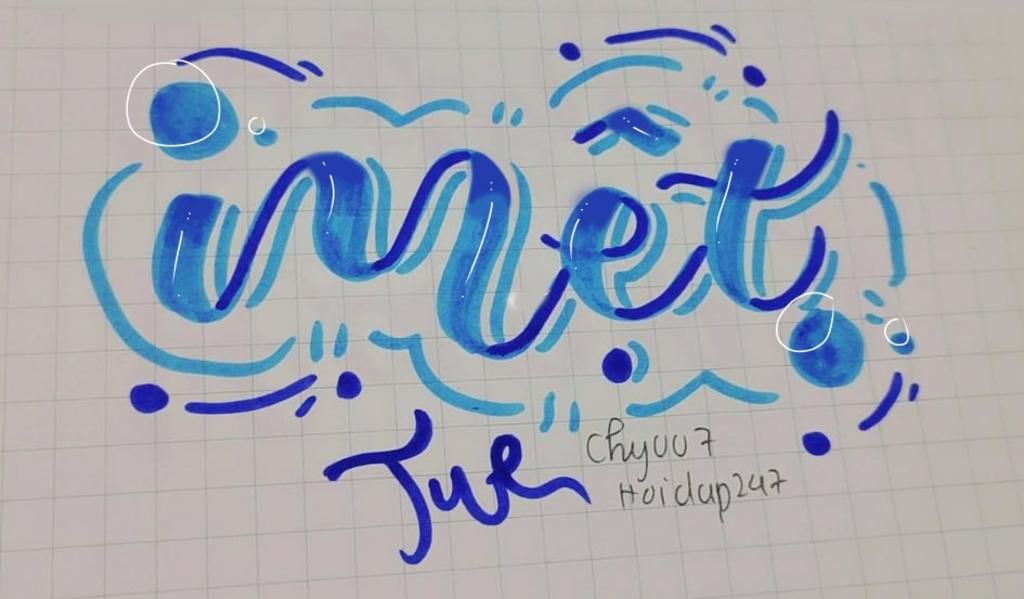 mệt
Chyuu7
Hoidap247